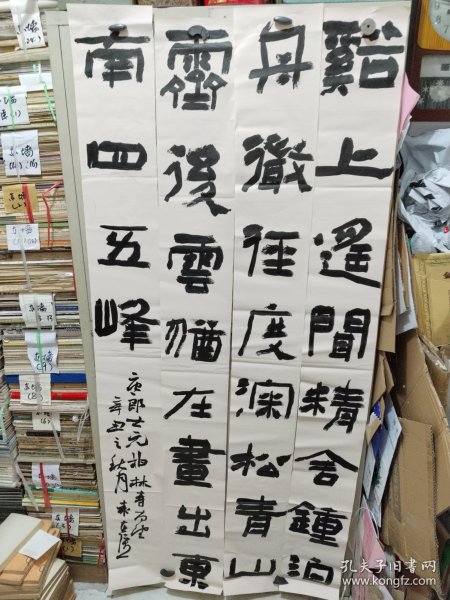 谿上遙聞精舍鍾泊
舟微径度深松青山
霽後雲猶在畫出東
南四五峰
唐郎士元柏林寺南望
辛丑之秋月
孔夫子旧书网
www.kongfz.com